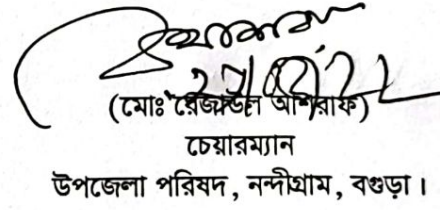 (মোঃ রেজাউল আশরাফ)
চেয়ারম্যান
উপজেলা পরিষদ, নন্দীগ্রাম, বগুড়া।